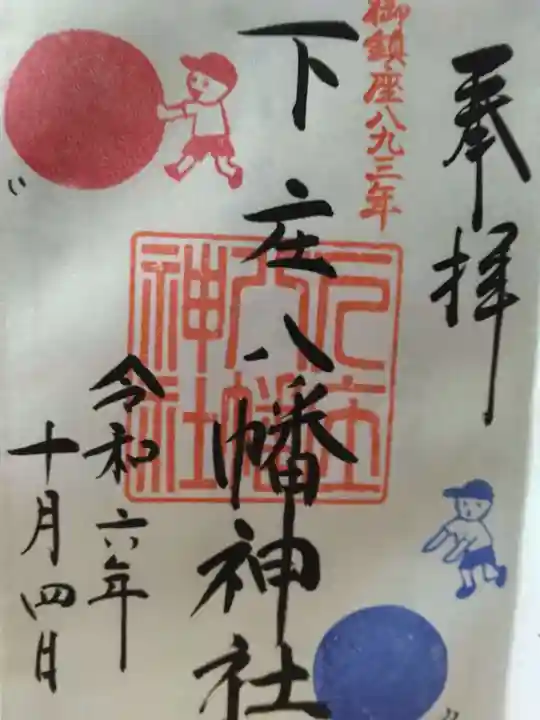 奉拝
御鎮座八九三年
下庄八幡神社
下庄
八幡
神社
令和六年
十月四日